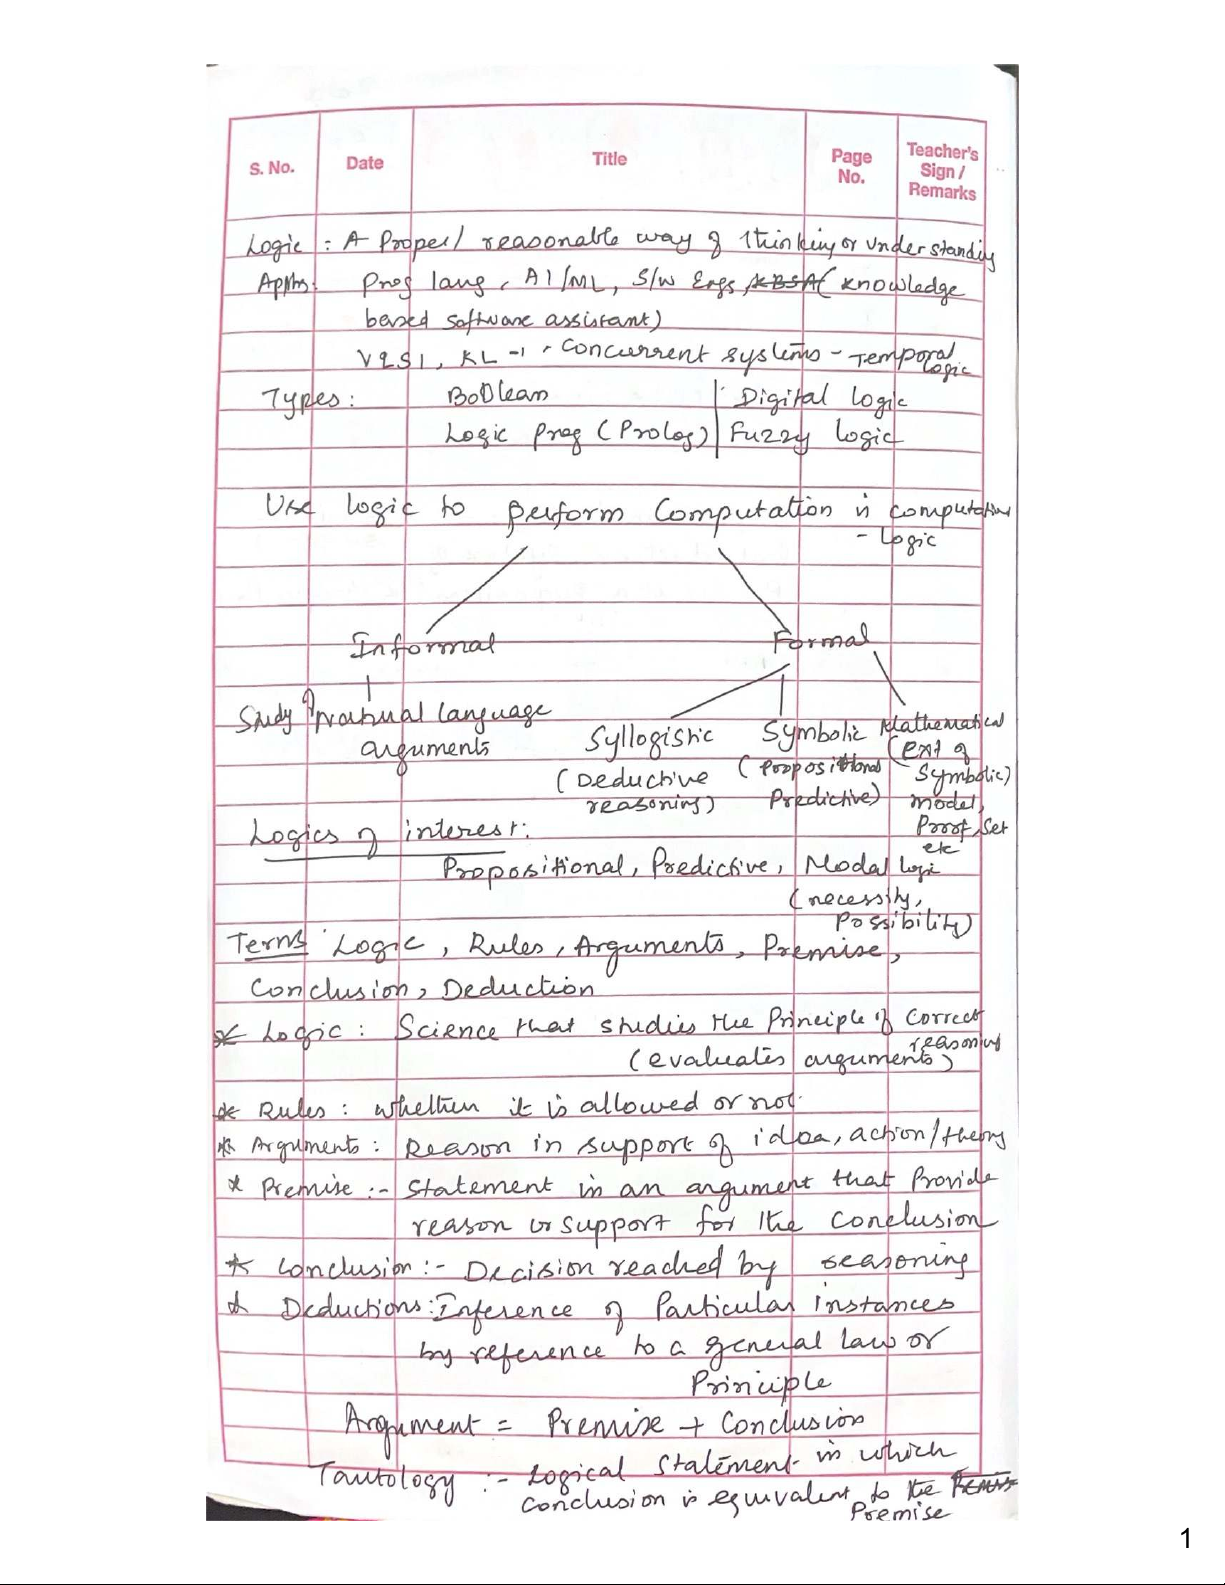 S. No. Date Title Page No. Teacher's Sign / Remarks
Logic : A Proper/ reasonable way of thinking or understanding
Prog lang, AI/ML, S/W Engg, KBSA( knowledge
based software assistant)
KL-1, Concurrent systems - Temporal logic
Types : Boolean | Digital logic
Logic prog (Prolog) | Fuzzy logic
Use logic to perform Computation is computational
- Logic
Informal Formal
Study of Natural language arguments
Syllogistic (Deductive reasoning)
Symbolic (Propositional Predictive)
Mathematical (Ext of Symbolic) model, Proof, Set etc
Logics of interest:
Propositional, Predictive, Modal logic
(necessity,
Possibility)
Terms : Logic, Rules, Arguments, Premise,
Conclusion, Deduction
* Logic : Science that studies the Principle of correct reasoning
(evaluates arguments)
* Rules : whether it is allowed or not.
* Arguments : Reason in support of idea, action/theory
* Premise :- Statement in an argument that Provide
reason or support for the conclusion
* Conclusion :- Decision reached by reasoning
* Deductions : Inference of Particular instances
by reference to a general law or
Principle
Argument = Premise + Conclusion
Tautology :- Logical Statement in which
conclusion is equivalent to the
Premise
1